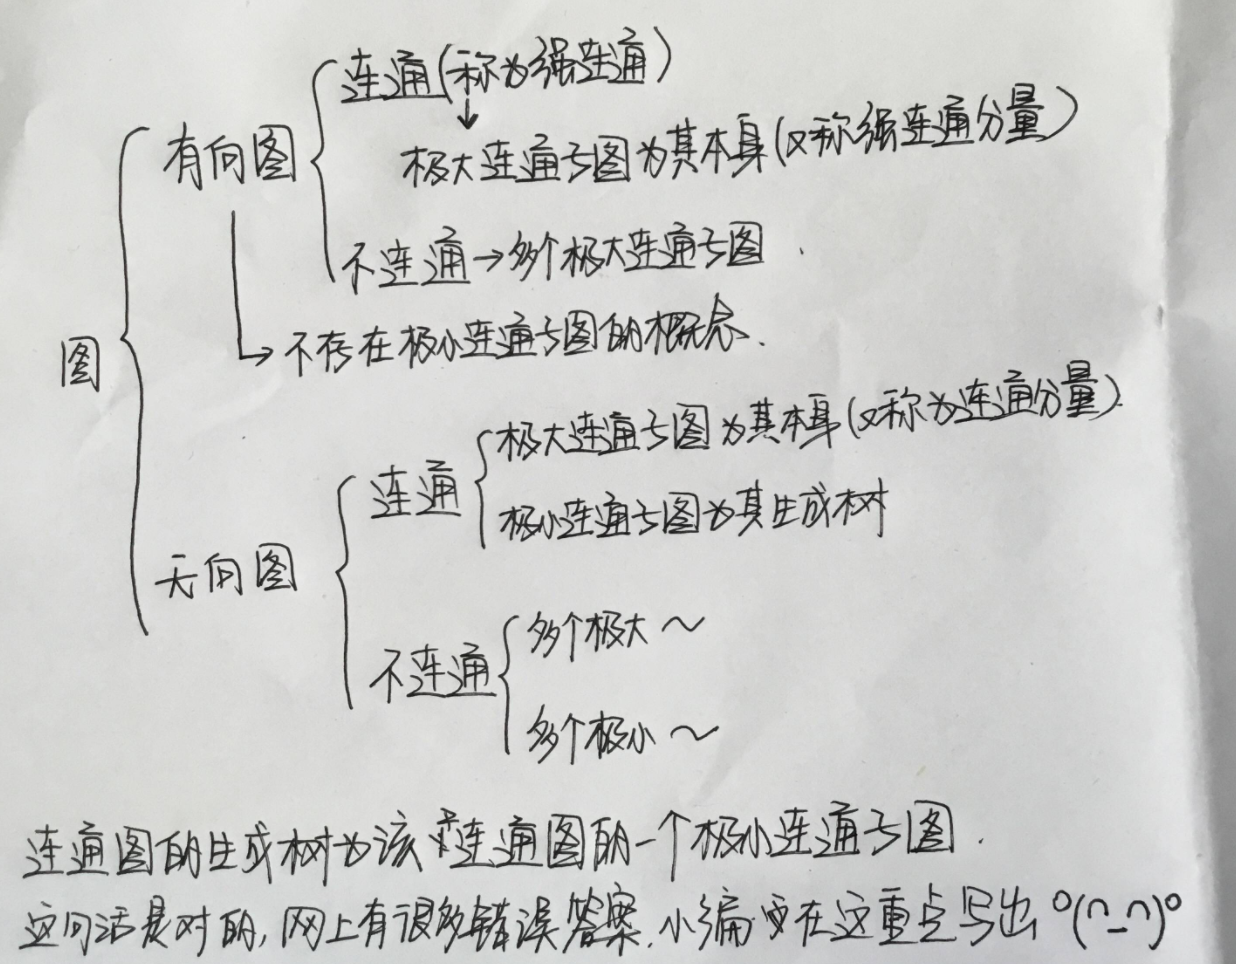 连通(称为强连通)
有向图
极大连通子图为其本身(又称强连通分量)
不连通→多个极大连通子图
图
不存在极小连通子图的概念.
极大连通子图为其本身(又称为连通分量).
连通
极小连通子图为其生成树
无向图
多个极大~
不连通
多个极小~
连通图的生成树为该连通图的一个极小连通子图.
这句话是对的,网上有很多错误答案.小编要在这重点写出°(∩_∩)°